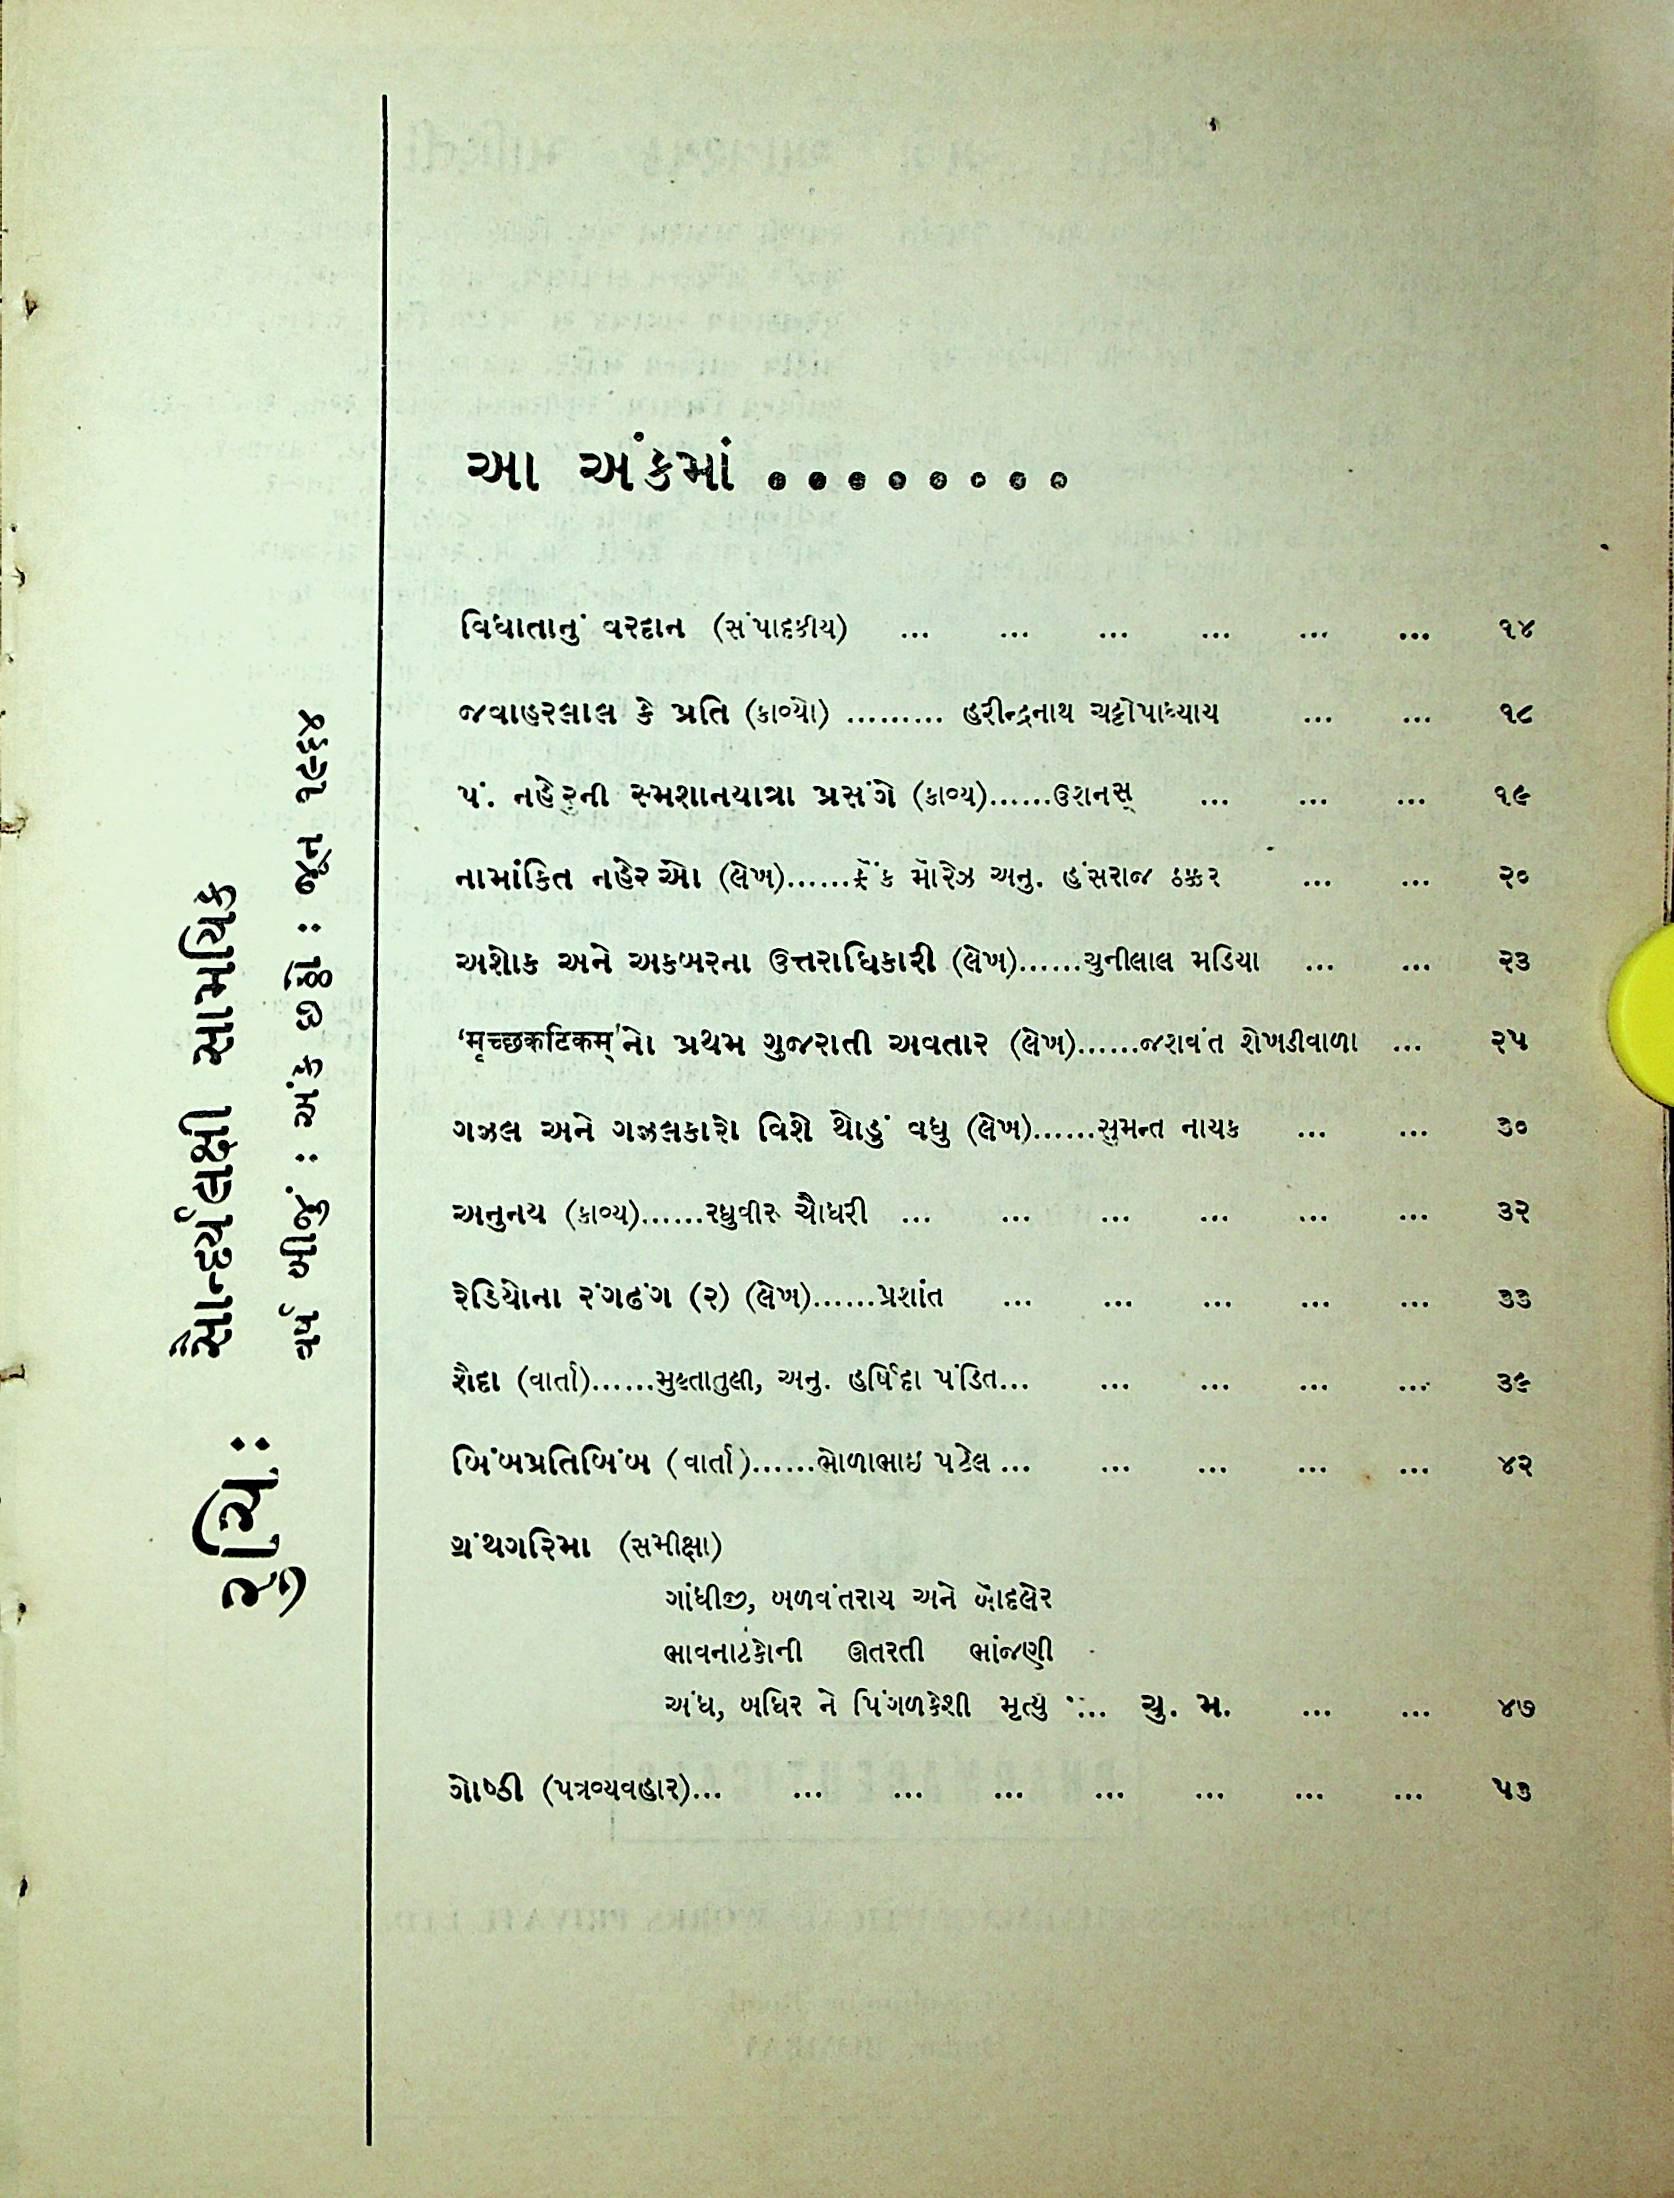 રુચિ: સૌન્દર્યલક્ષી સામયિક
વર્ષ બીજું : અંક છઠ્ઠો : જૂન ૧૯૬૪
આ અંકમાં ● ● ● ● ● ● ● ●
વિધાતાનું વરદાન (સંપાદકીય) ... ... ... ... ... ... ૧૪
જવાહરલાલ કે પ્રતિ (કાવ્યો) ......... હરીન્દ્રનાથ ચટ્ટોપાધ્યાય ... ... ૧૮
પં. નહેરુની સ્મશાનયાત્રા પ્રસંગે (કાવ્ય)......ઉશનસ્ ... ... ... ૧૯
નામાંકિત નહેરુઓ (લેખ)......ફ્રૅંક મૉરેઝ અનુ. હંસરાજ ઠક્કર ... ... ૨૦
અશોક અને અકબરના ઉત્તરાધિકારી (લેખ)......ચુનીલાલ મડિયા ... ... ૨૩
‘मृच्छकटिकम्’નો પ્રથમ ગુજરાતી અવતાર (લેખ)......જશવંત શેખડીવાળા ... ૨૫
ગઝલ અને ગઝલકારો વિશે થોડું વધુ (લેખ)......સુમન્ત નાયક ... ... ૩૦
અનુનય (કાવ્ય)......રઘુવીર ચૌધરી ... ... ... ... ... ... ૩૨
રેડિયોના રંગઢંગ (૨) (લેખ)......પ્રશાંત ... ... ... ... ... ૩૩
શૈદા (વાર્તા)......મુક્તાતુલી, અનુ. હર્ષિદા પંડિત... ... ... ... ... ૩૯
બિંબપ્રતિબિંબ (વાર્તા)......ભોળાભાઇ પટેલ ... ... ... ... ... ૪૨
ગ્રંથગરિમા (સમીક્ષા)
ગાંધીજી, બળવંતરાય અને બૉદલેર
ભાવનાટકોની ઊતરતી ભાંજણી
અંધ, બધિર ને પિંગળકેશી મૃત્યુ ... ચુ. મ. ... ... ૪૭
ગોષ્ઠી (પત્રવ્યવહાર)... ... ... ... ... ... ... ... ૫૩